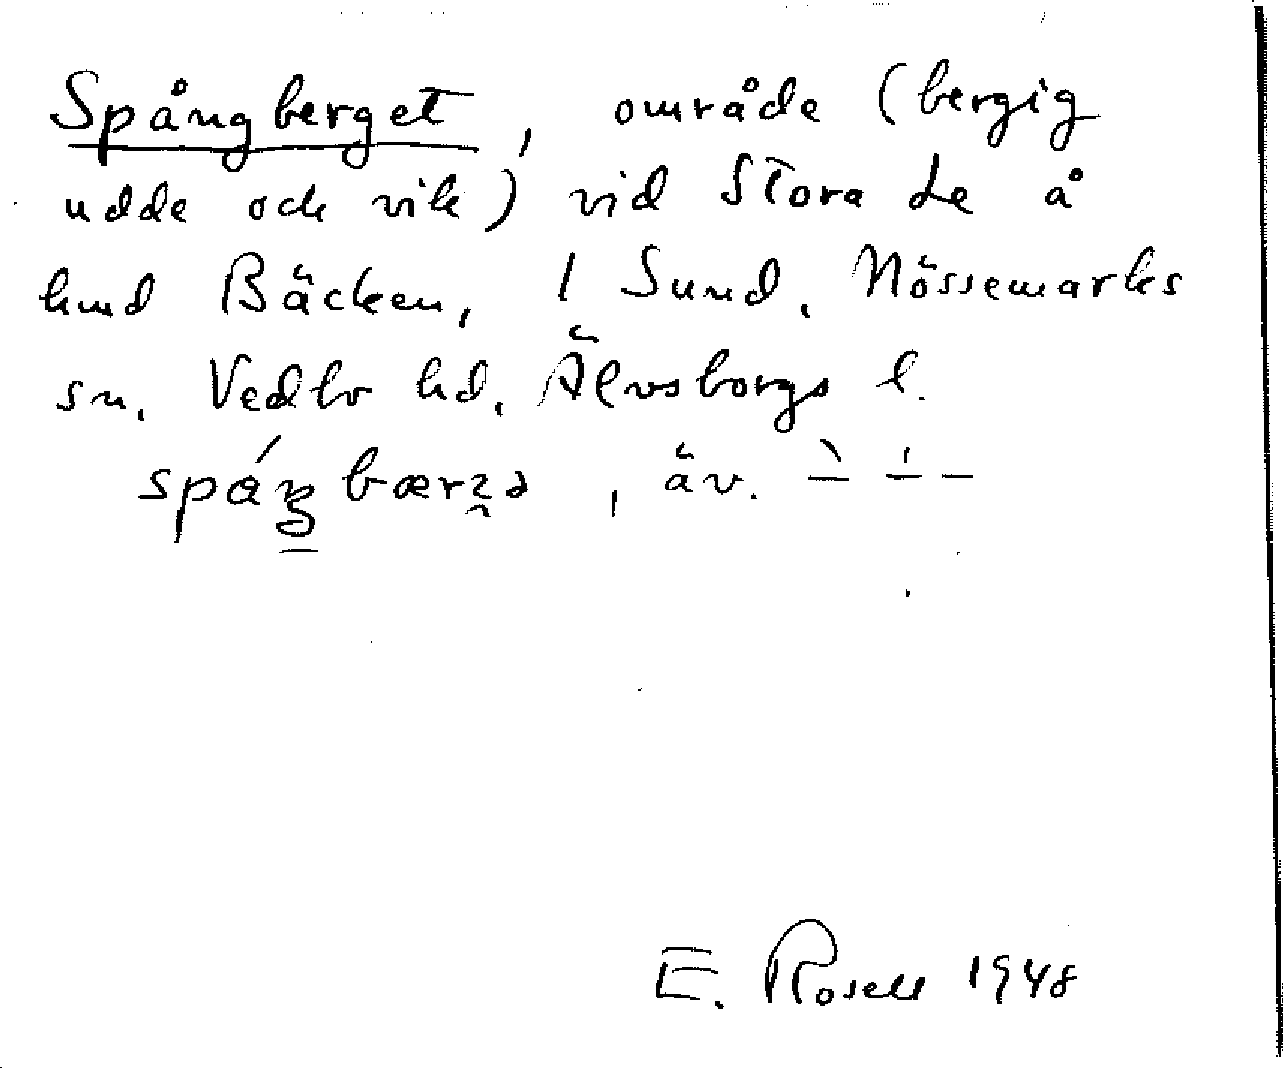 Spångberget, område (bergig
udde och vik) vid Stora Le å
hmd Bäcken, 1 Sund, Nössemarks
sn. Vedbo hd, Älvsborgs l.
, äv. – – –
E. Rosell 1948